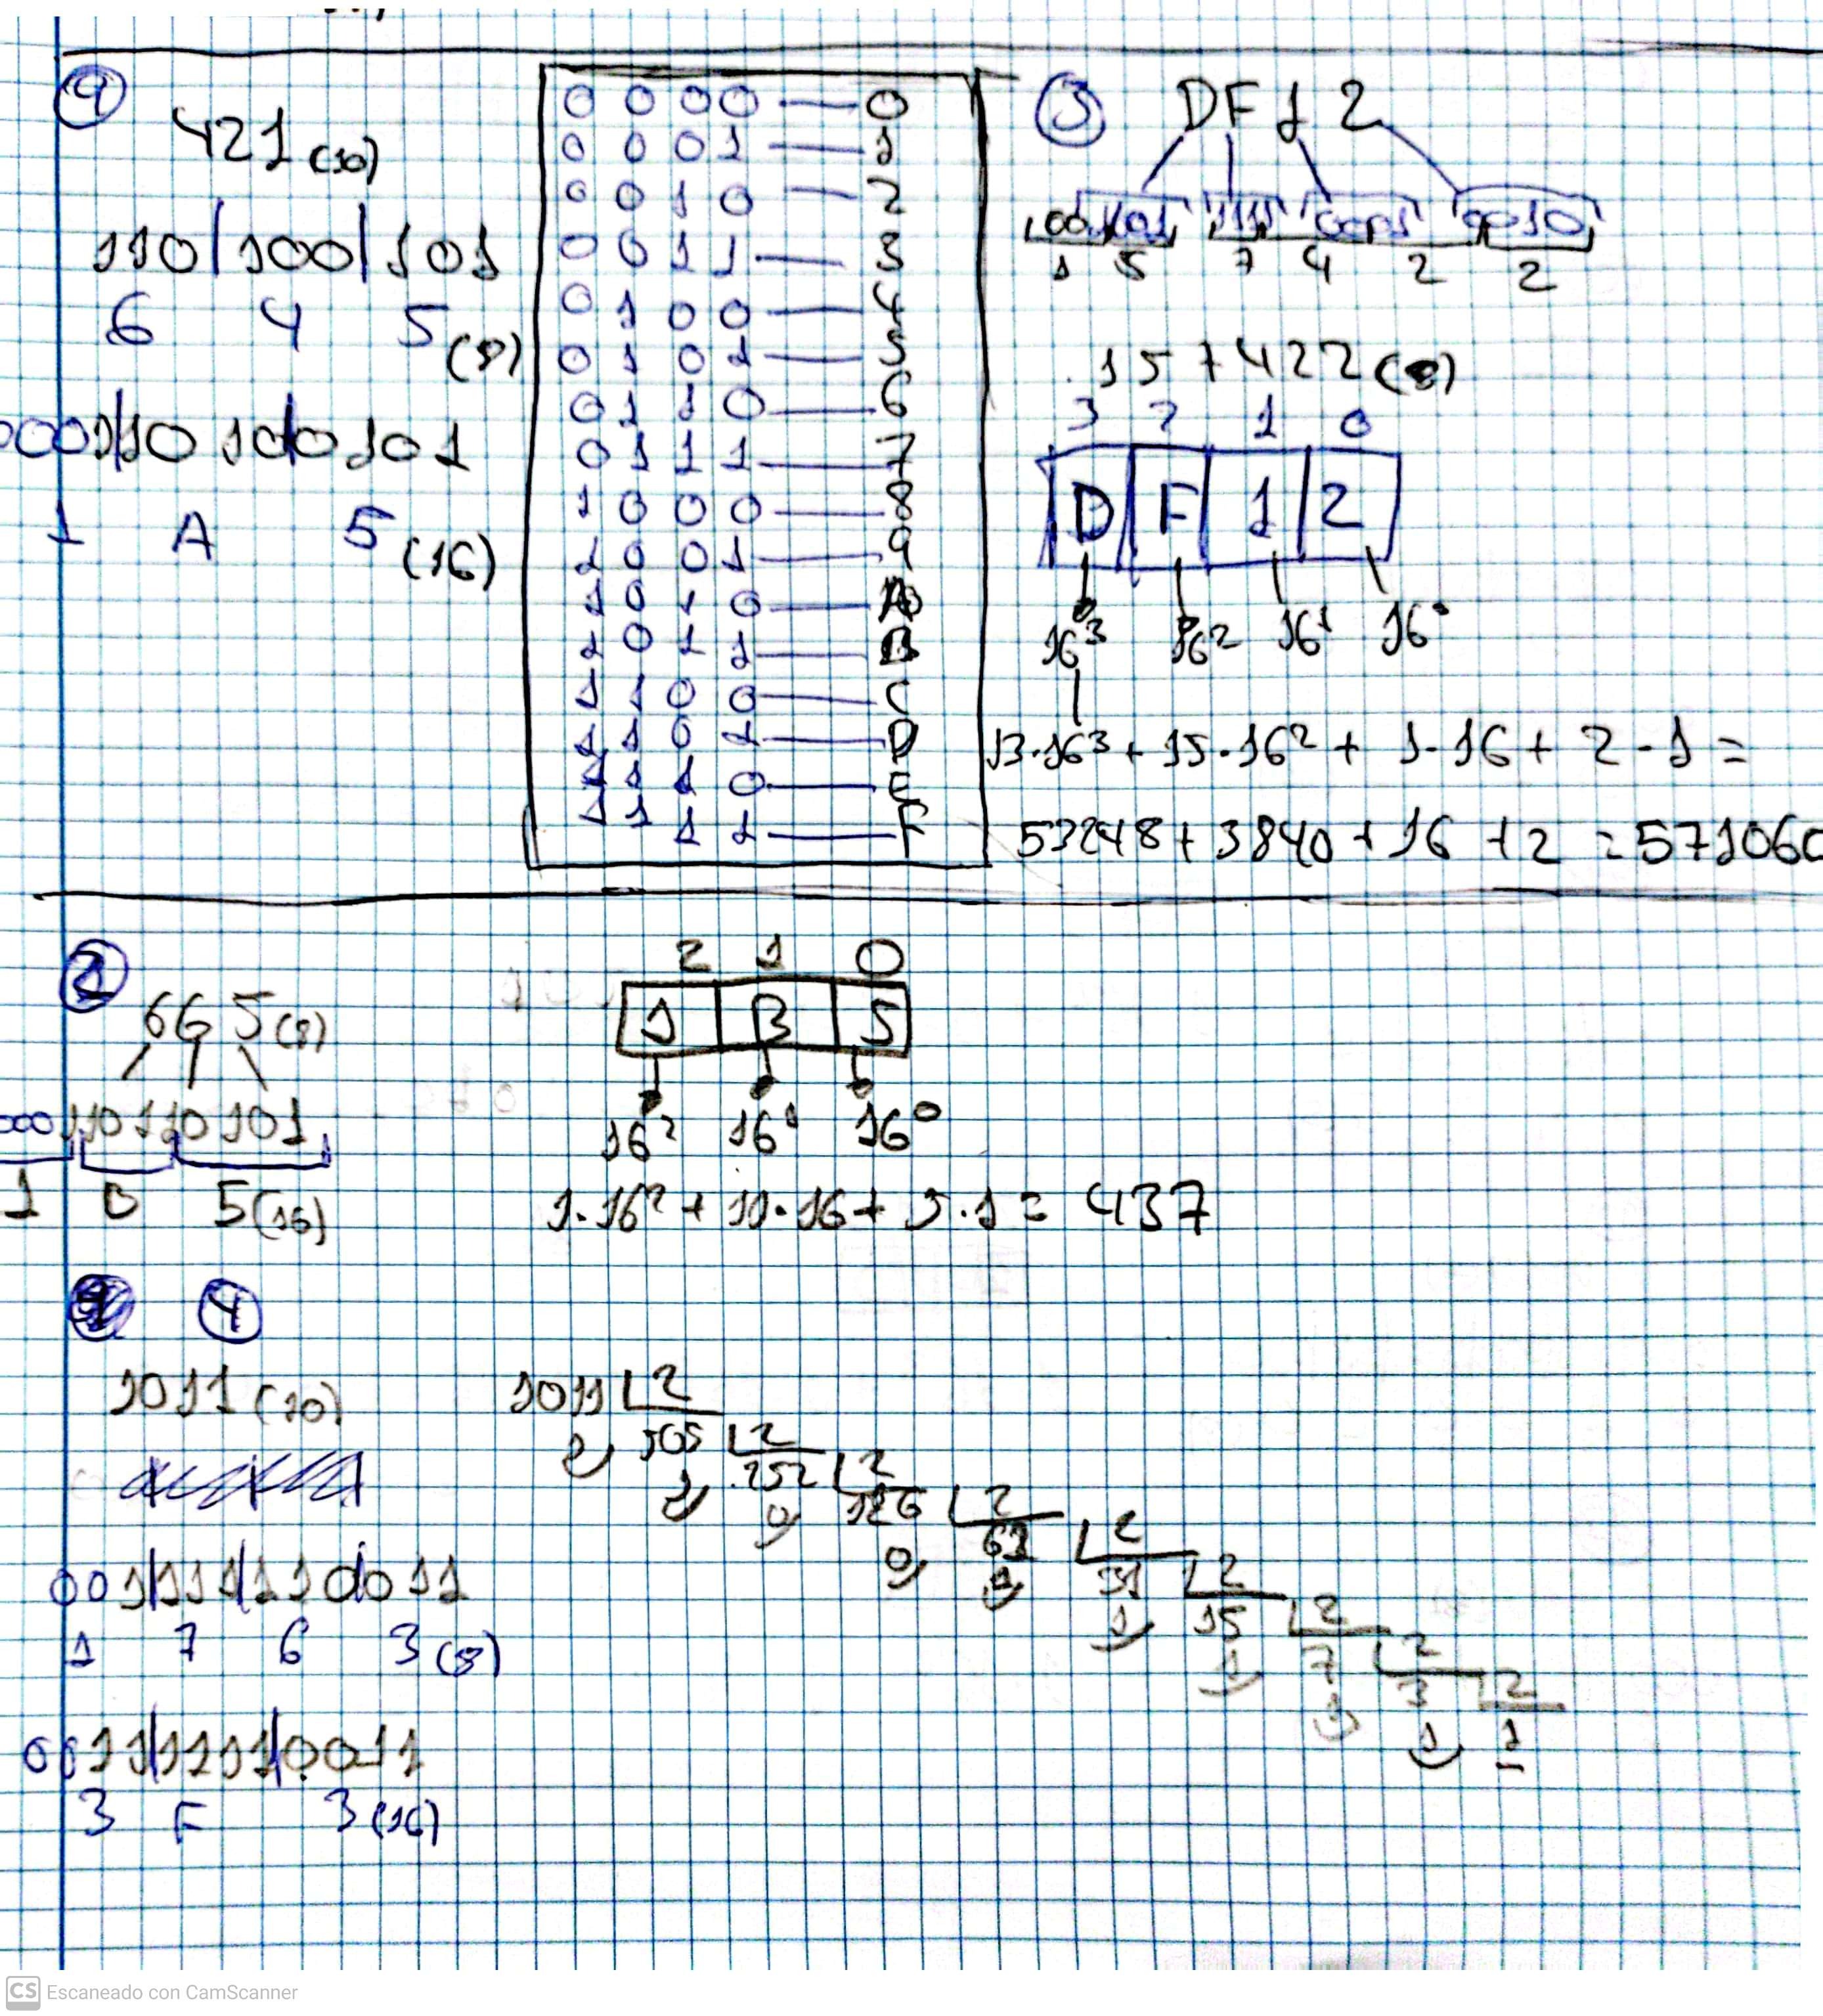 ①
421(10)
110|100|101
6 4 5(8)
0001|1010|0101
1 A 5(16)
0 0 0 0 — 0
0 0 0 1 — 1
0 0 1 0 — 2
0 0 1 1 — 3
0 1 0 0 — 4
0 1 0 1 — 5
0 1 1 0 — 6
0 1 1 1 — 7
1 0 0 0 — 8
1 0 0 1 — 9
1 0 1 0 — A
1 0 1 1 — B
1 1 0 0 — C
1 1 0 1 — D
1 1 1 0 — E
1 1 1 1 — F
③ DF12
1101 1111 0001 0010
1 5 7 4 2 2
157422(8)
3 2 1 0
D F 1 2
16³ 16² 16¹ 16⁰
13·16³ + 15·16² + 1·16 + 2·1 =
53248 + 3840 + 16 + 2 = 57106
②
665(8)
000110110101
1 B 5(16)
2 1 0
1 B 5
16² 16¹ 16⁰
1·16² + 11·16 + 5·1 = 437
④
1011(10)
001|111|110|011
1 7 6 3(8)
0011|1111|0011
3 F 3(16)
1011 2
1 505 2
1 252 2
0 126 2
0 63 2
1 31 2
1 15 2
1 7 2
1 3 2
1 1
CS Escaneado con CamScanner